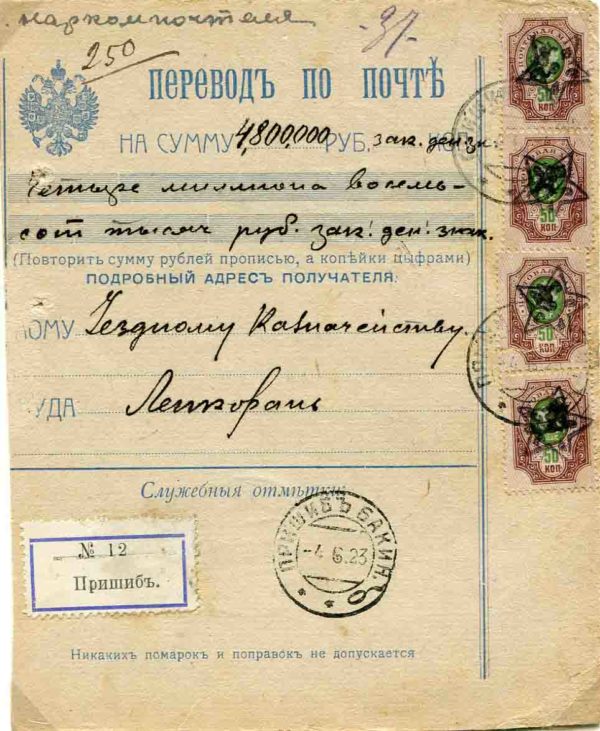 наркомпочтеля
250
37.
ПЕРЕВОДЪ ПО ПОЧТѢ
НА СУММУ 4,800,000 РУБ. зак. ден зн. КОП.
Четыре миллиона восемь-
сот тысяч руб. зак. ден. знак.
(Повторить сумму рублей прописью, а копѣйки цыфрами)
ПОДРОБНЫЙ АДРЕСЪ ПОЛУЧАТЕЛЯ.
ОМУ Уездному Казначейству.
УДА Ленкорань
Служебныя отмѣтки
№ 12
Пришибъ.
ПРИШИБЪ БАКИН.
-4.6.23
Никакихъ помарокъ и поправокъ не допускается
50
КОП
50
КОП
50
КОП
50
КОП